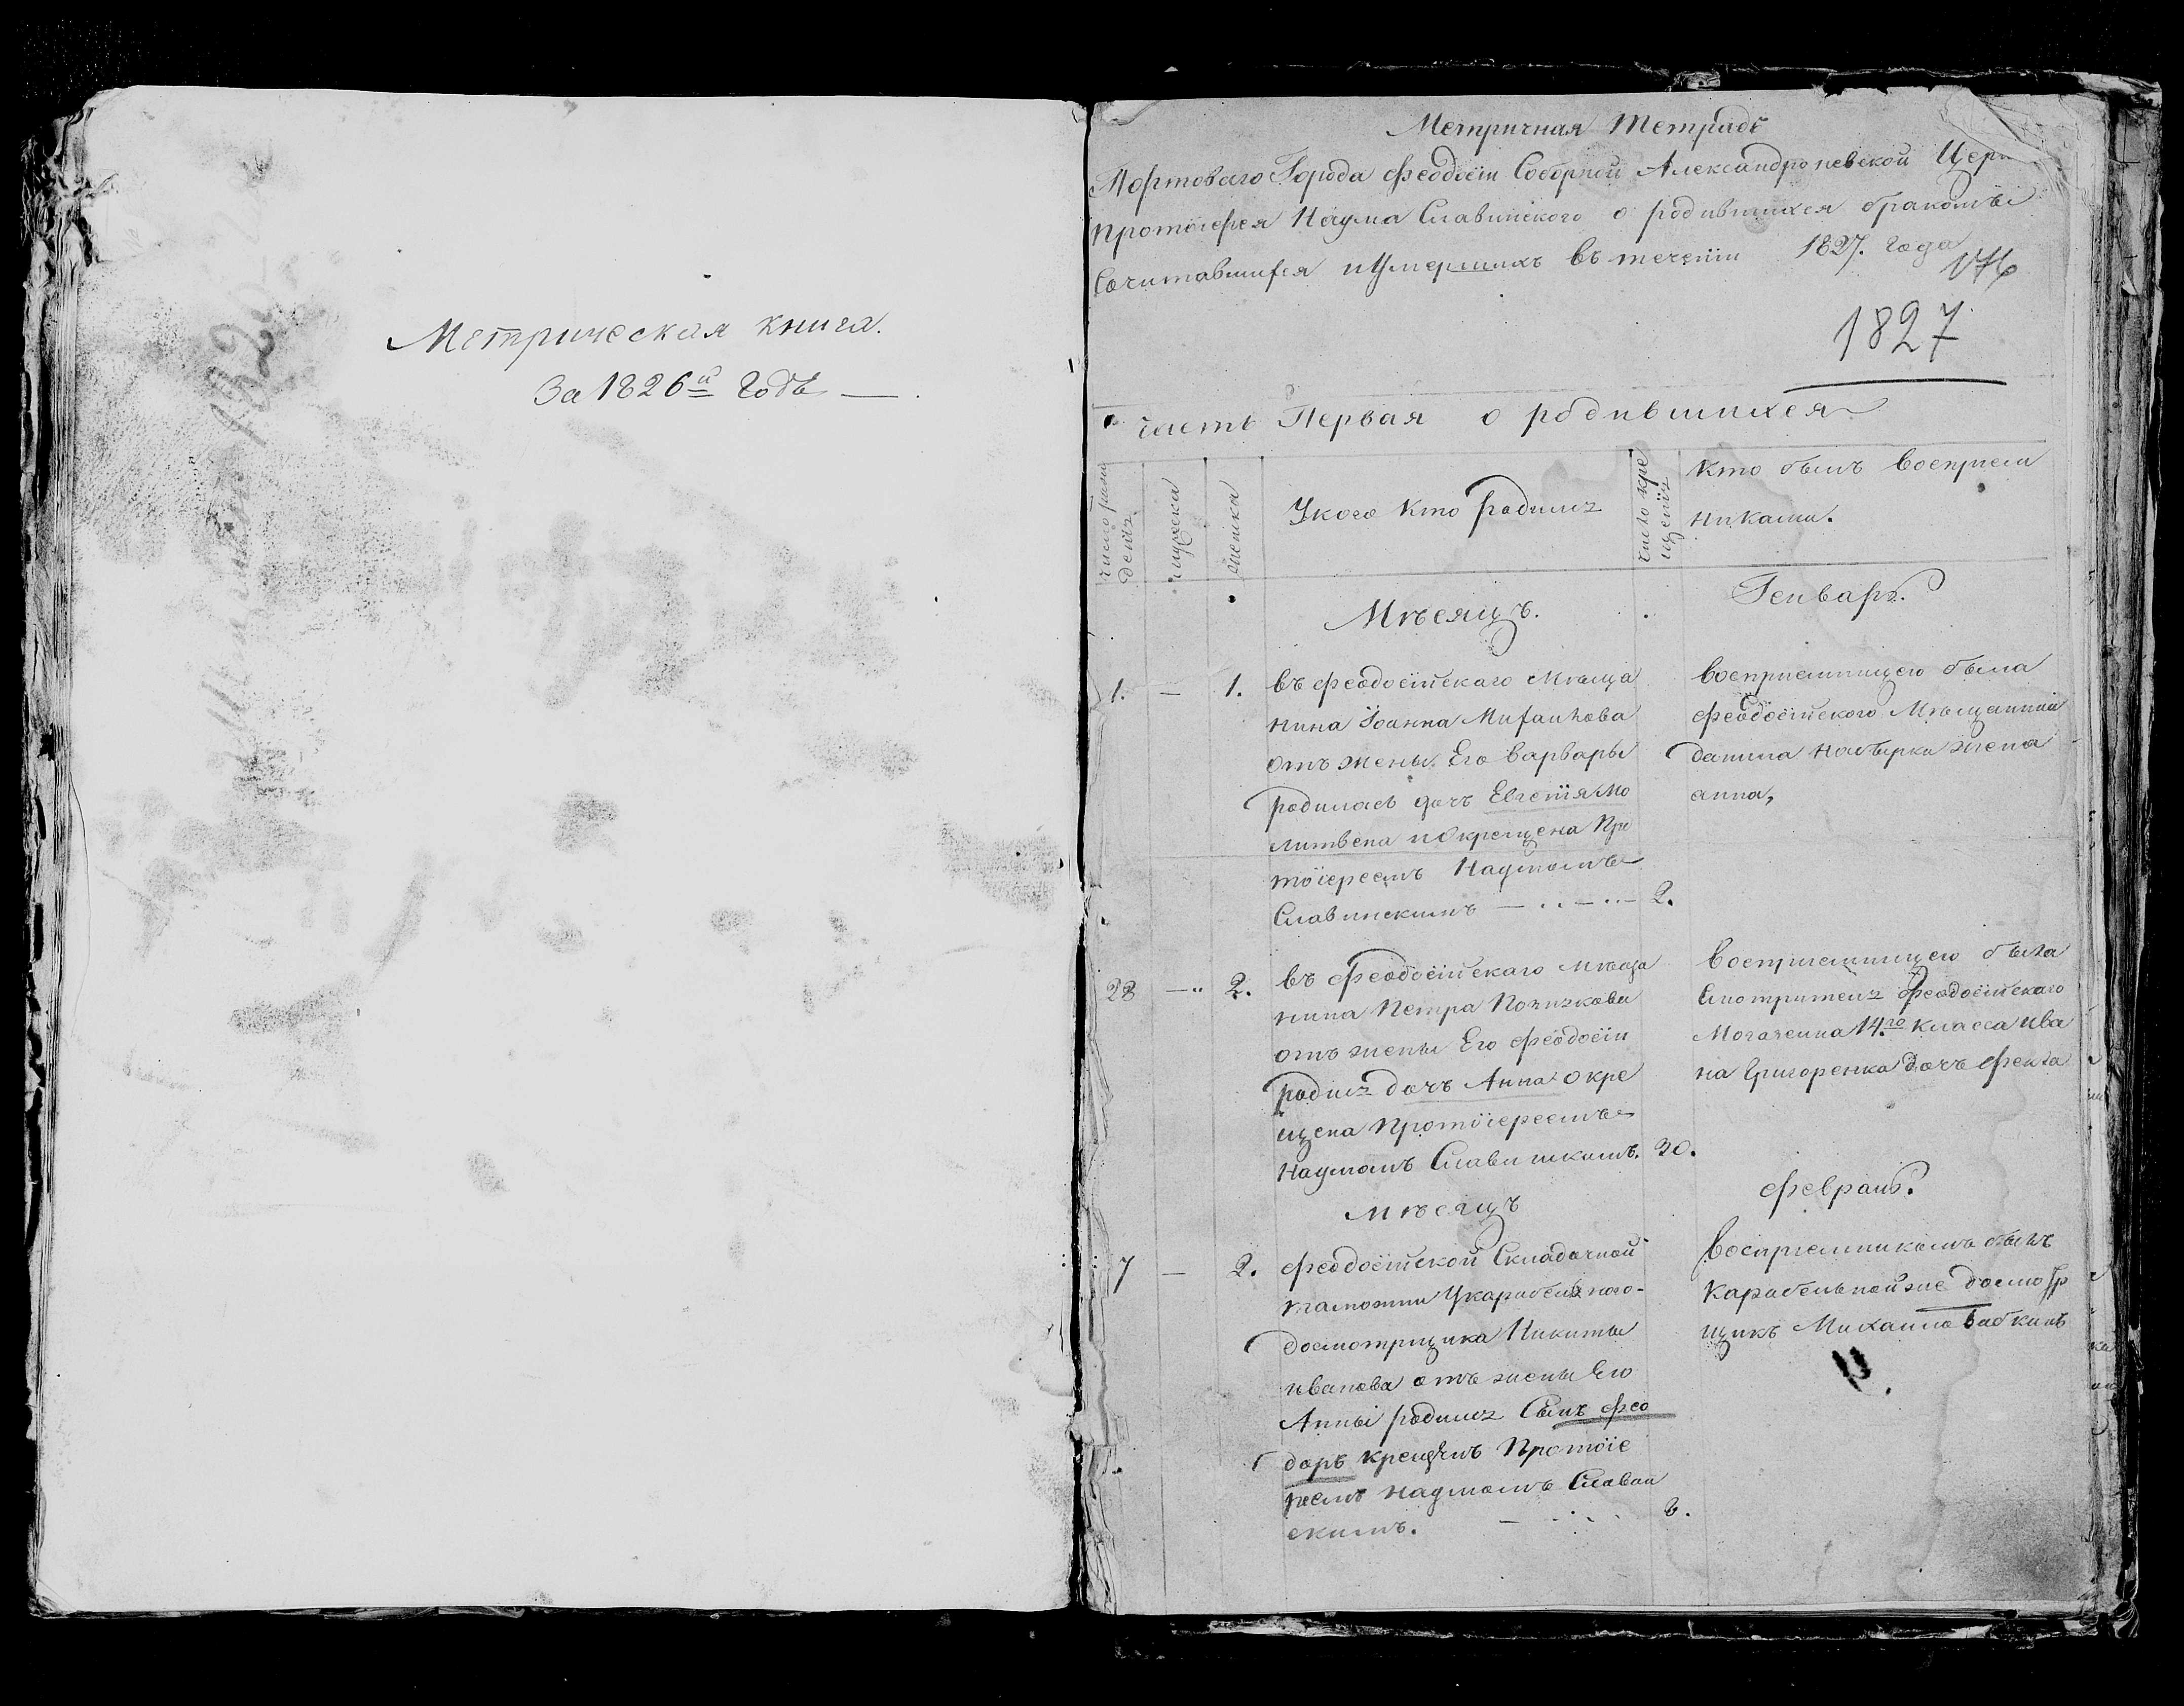 Метрическая книга.
За 1826й Годъ —.
Метричная Тетрадь
Портоваго Города Феодосіи Соборной Александроневской Церк
Протоіерея Наума Славинского о родившихся бракомъ
Сочитавшихся и Умершихъ въ теченіи 1827. Года
1827
Часть Первая о родившихся
число рож
денія
мужеска
женска
У кого кто родился
число кре
щенія
Кто былъ восприем
никами.
Мѣсяцъ.
Генварь.
1. — 1. въ Феодосійскаго Мѣща
нина Іоанна Михайлова
отъ жены Его Варвары
родилась дочь Евгенія Мо
литвена и Окрещена Про
тоіереемъ Наумомъ
Славинскимъ — 2.
восприемницею была
Феодосійского Мѣщанина
данила жена
анна,
28 — 2. въ Феодосійскаго мѣща
нина Петра
отъ жены Его Феодосіи
родилась дочь Анна окре
щена Протоіереемъ
Наумомъ Славинскимъ. 30.
восприемницею была
Смотрителя Феодосійскаго
Могазеина 14.го класса ива
на Григоренка дочь Фекла
мѣсяцъ
февраль.
7 — 2. Феодосійской Складочной
таможни У карабельного
досмотрщика Никиты
иванова отъ жены Его
Анны родился Сынъ Фео
доръ крещенъ Протоіе
реемъ Наумомъ Славин
скимъ.
восприемникомъ былъ
Карабельной же досмотр
щикъ Михаило Бабкинъ